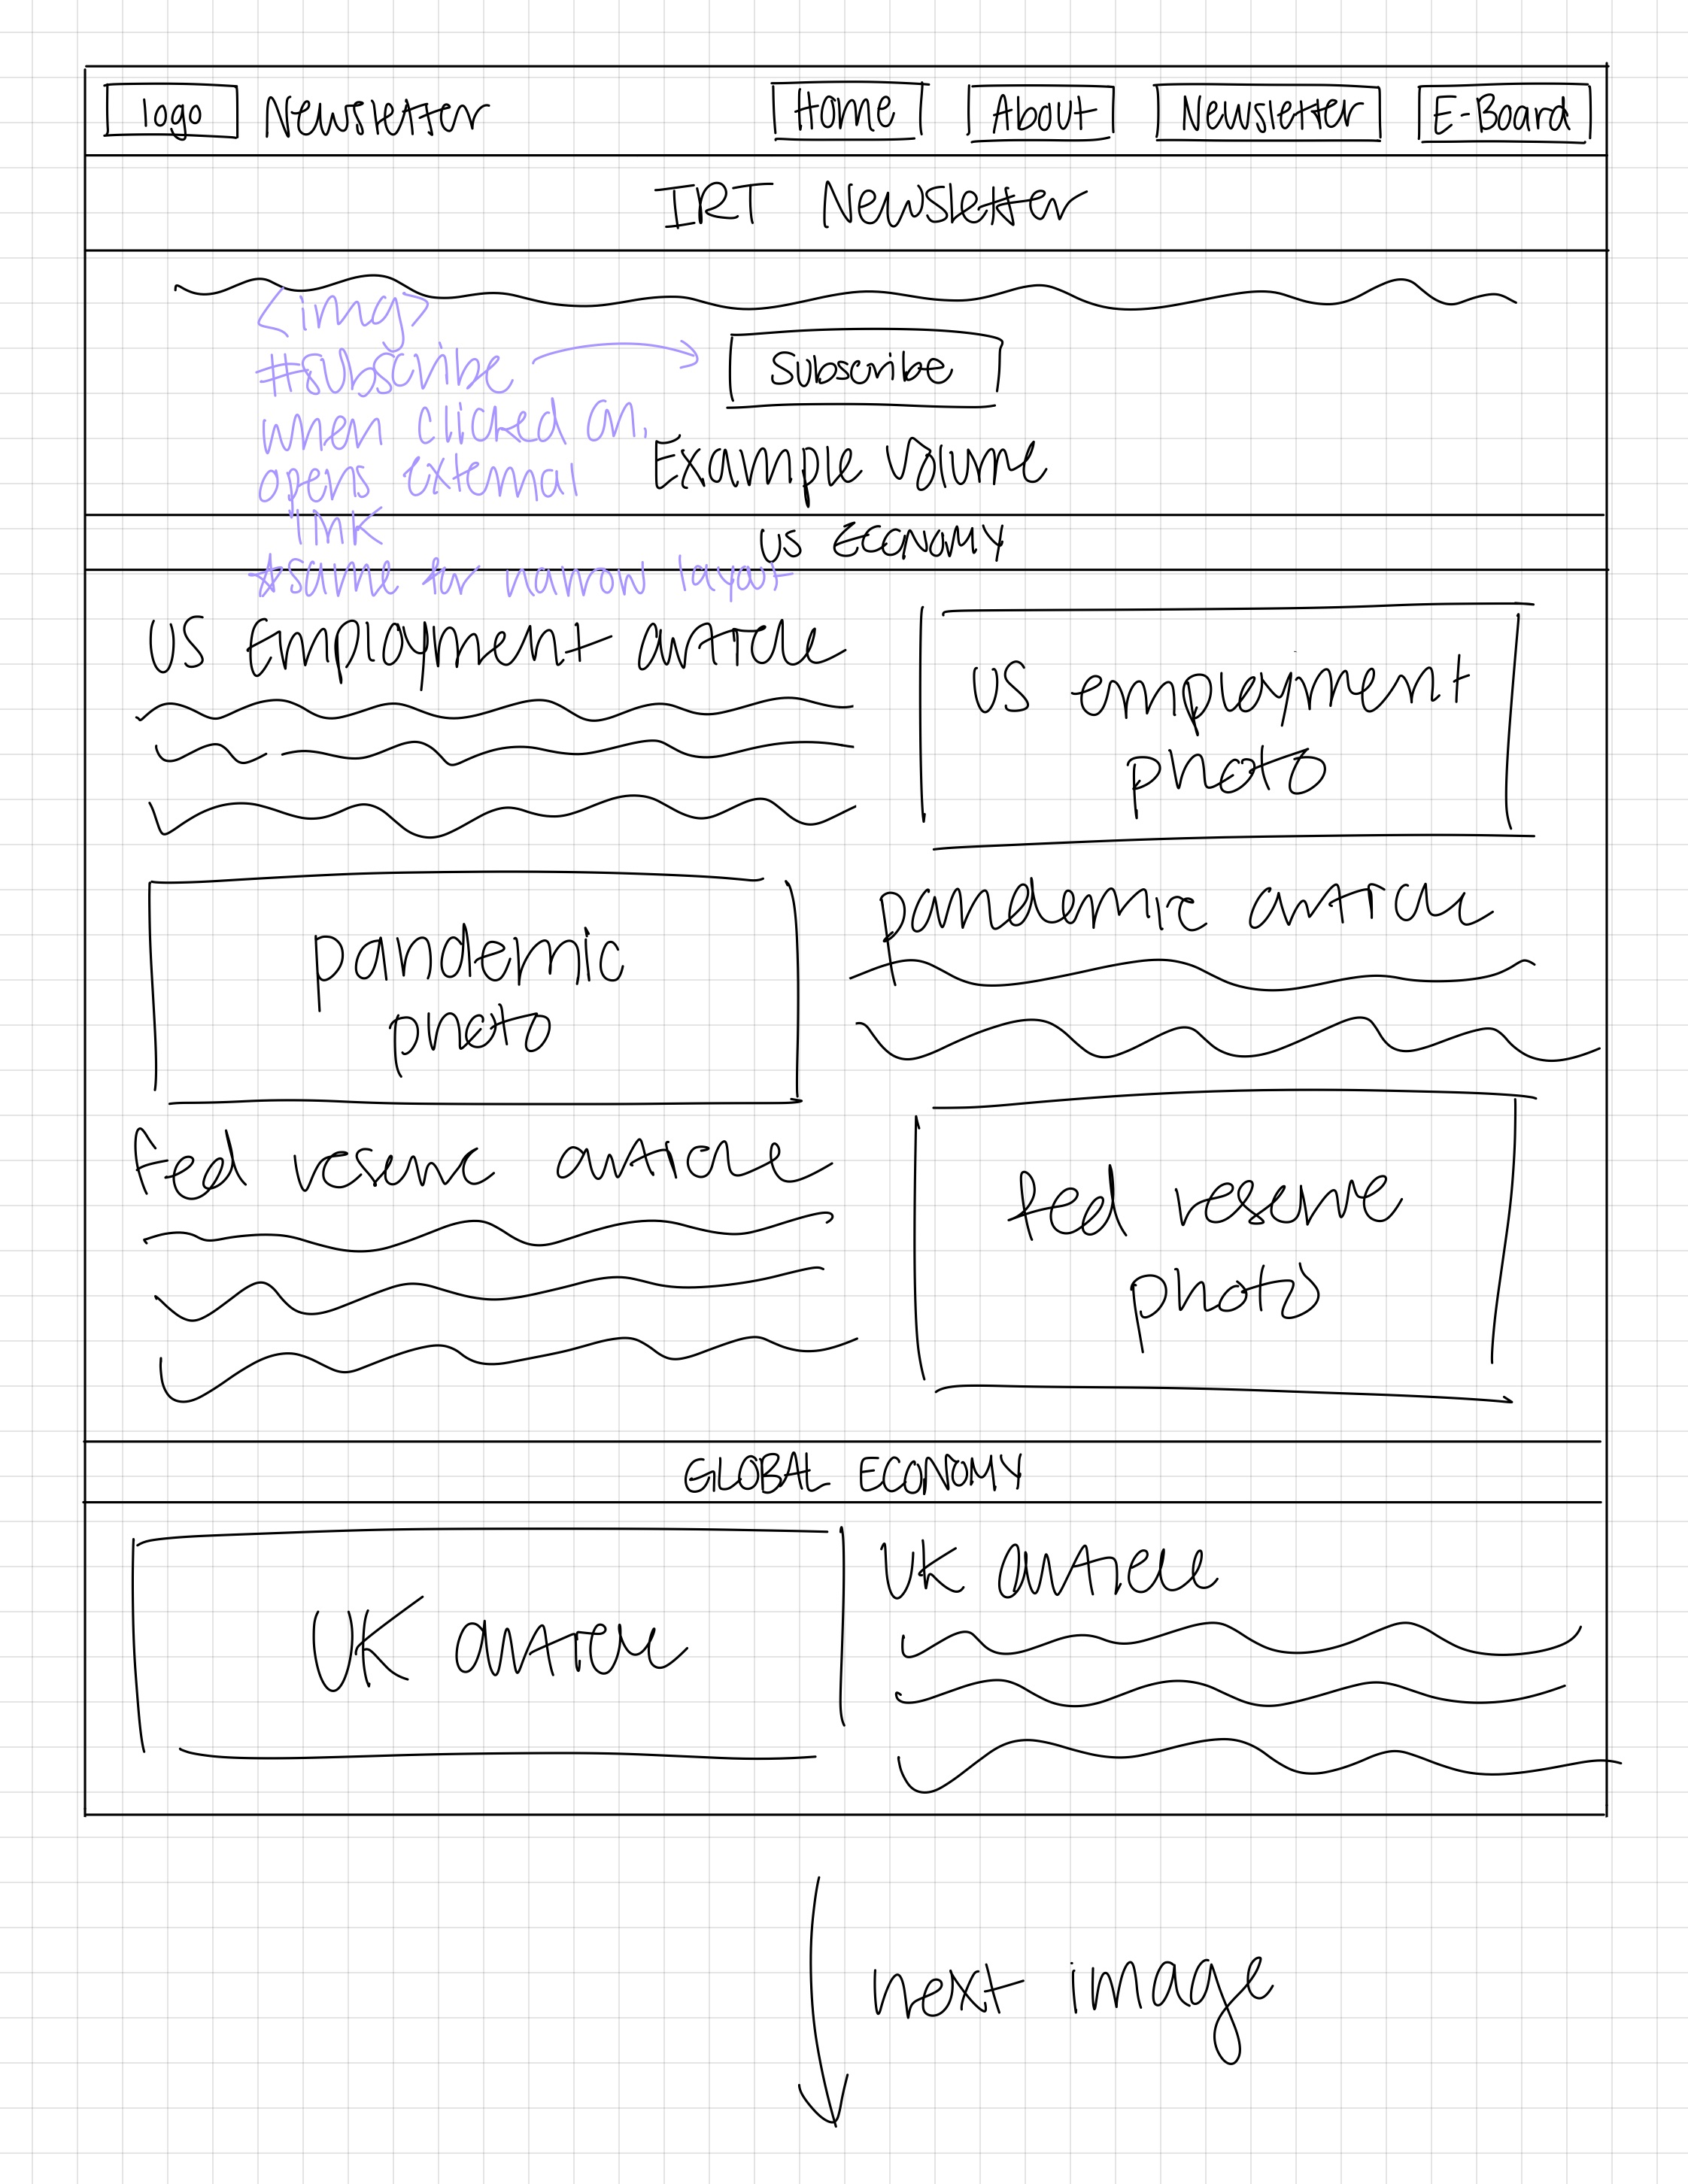 logo Newsletter Home About Newsletter E-Board
IRT Newsletter
<img>
#subscribe
when clicked on,
opens external
link
*same for narrow layout
Subscribe
Example Volume
US ECONOMY
US Employment article
US employment
photo
pandemic
photo
pandemic article
fed reserve article
fed reserve
photo
GLOBAL ECONOMY
UK article
UK article
next image